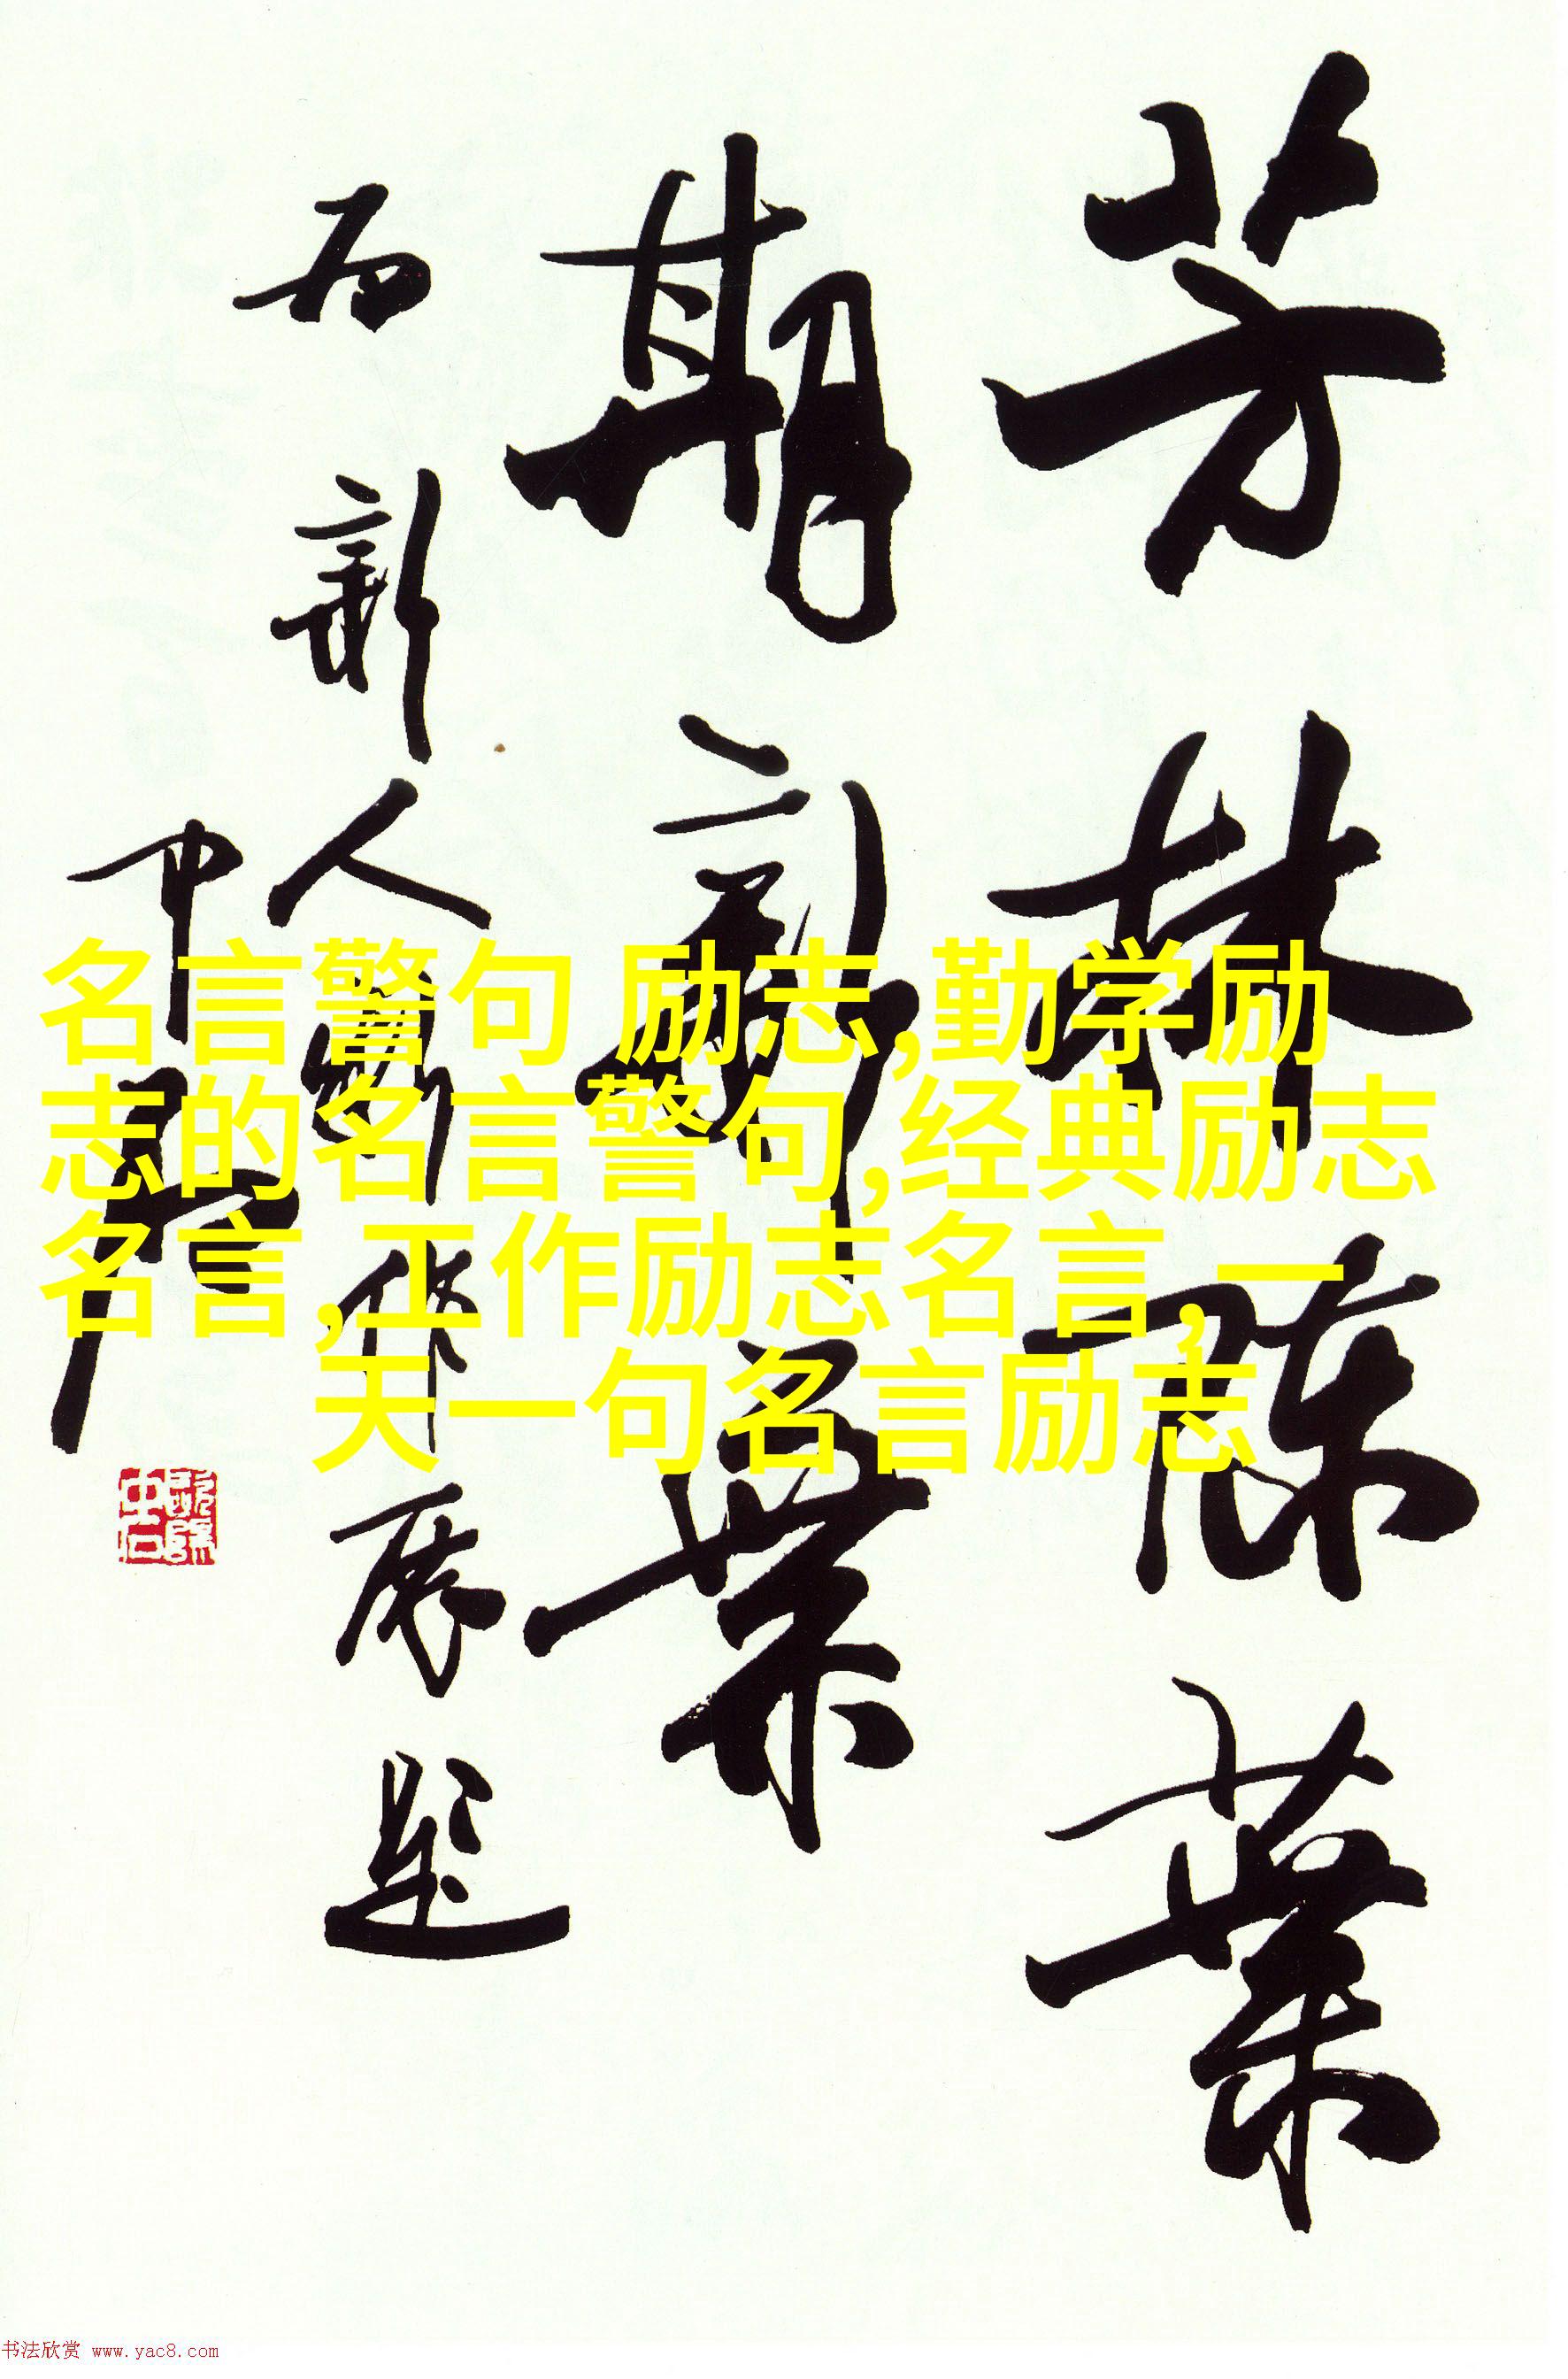 芳林陳葉
期新葉
新人作展題
中石
歐陽中石
名言警句 励志,勤学励
志的名言警句,经典励志
名言,工作励志名言,一
天一句名言励志
书法欣赏 www.yac8.com